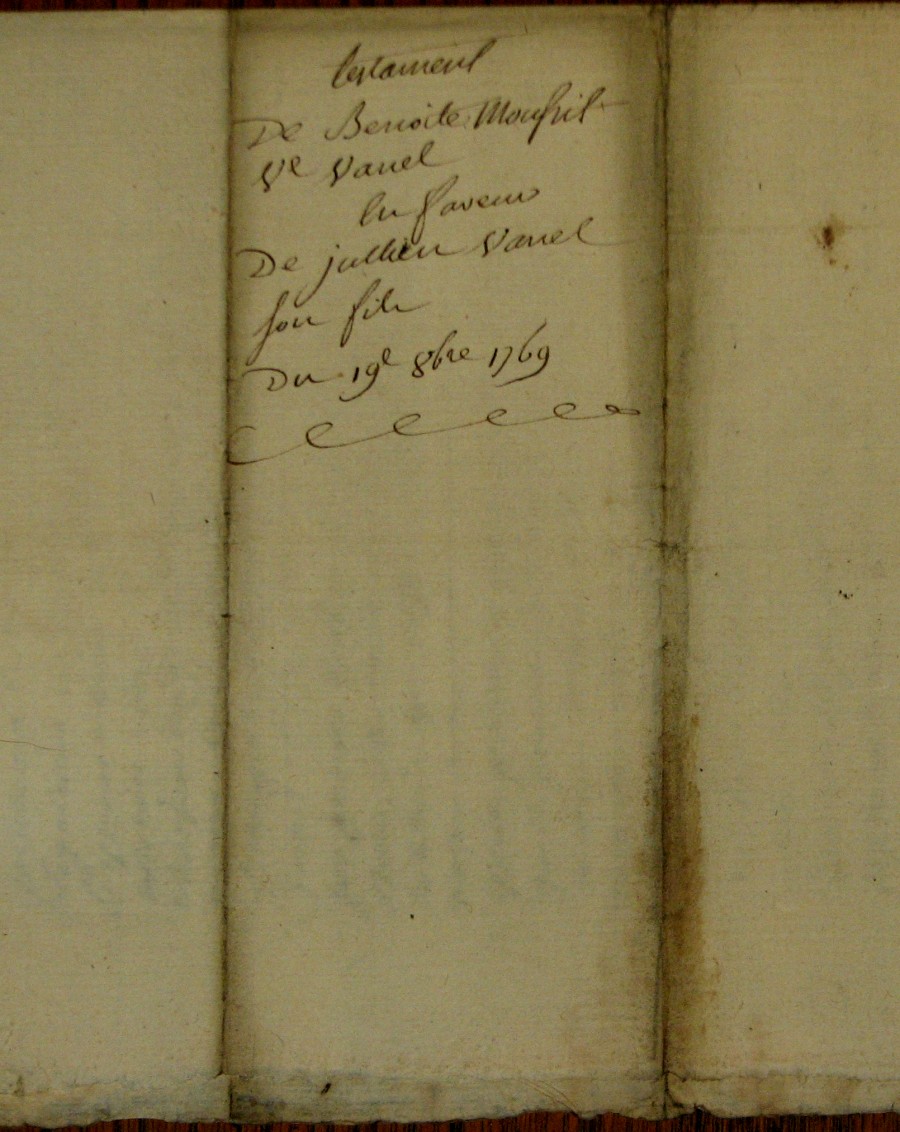 testament
De Benoite Monfrit
Ve Vanel
En faveur
De jullien Vanel
son fils
Du 19e 8bre 1769